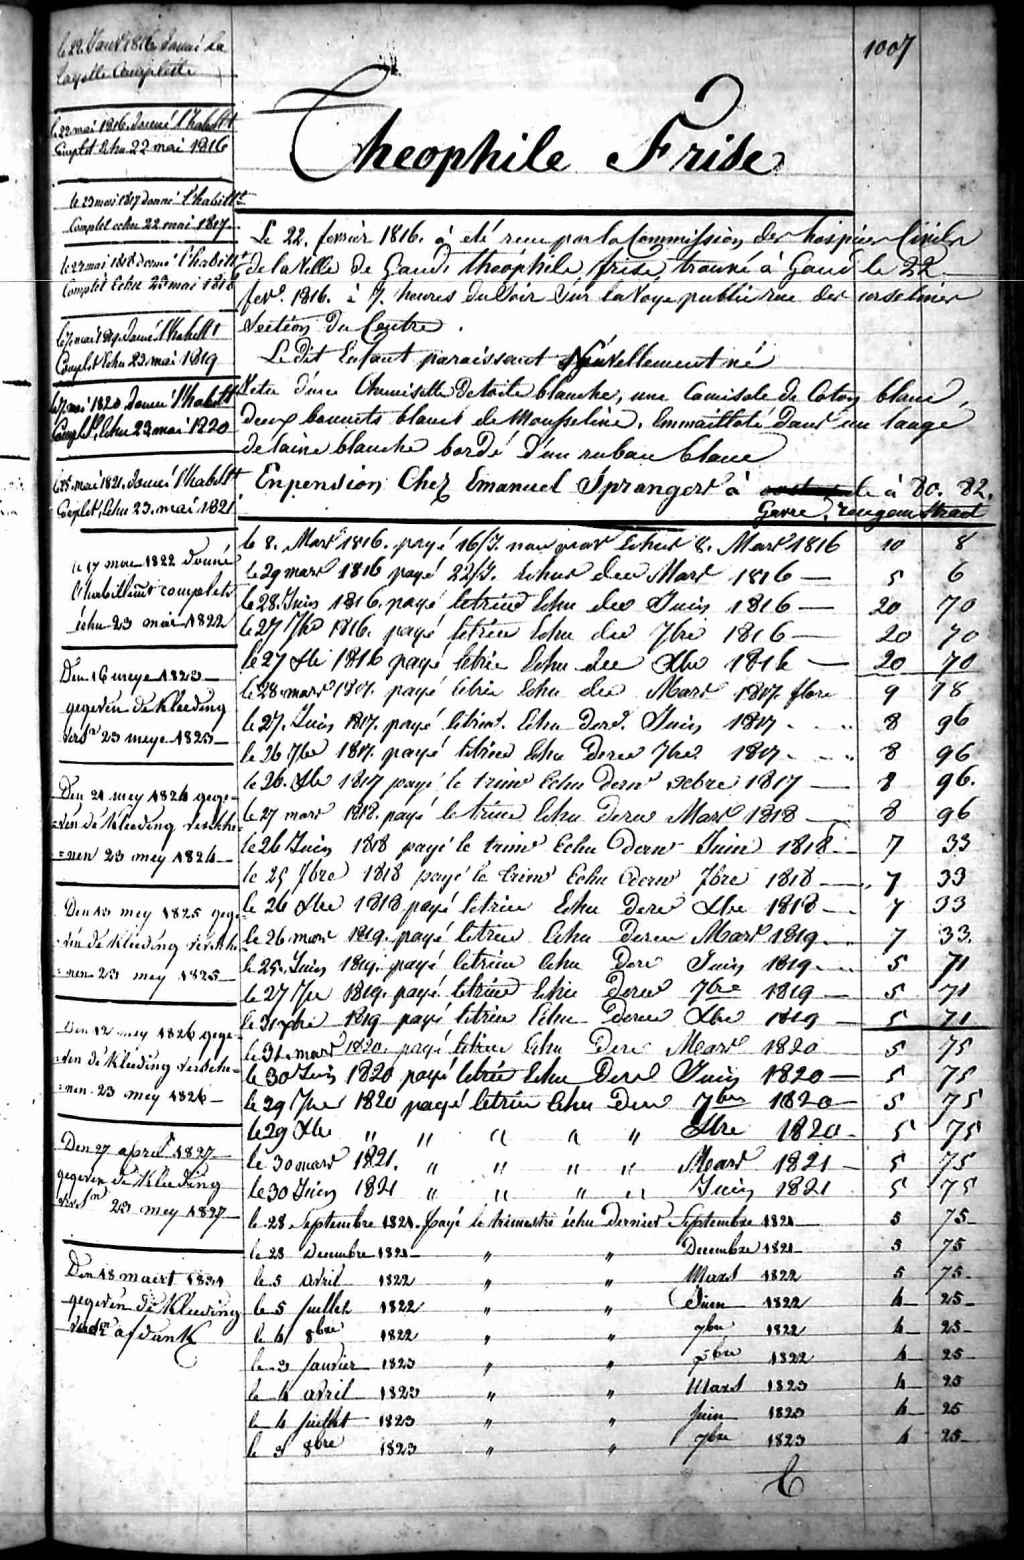 1007
Theophile Frise
le 22 Janv 1816 donné la
layette Complette
le 22 mai 1816. donné l'habillt
Complet Echu 22 mai 1816
le 23 mai 1817 donné l'habillt
Complet echu 22 mai 1817
le 27 mai 1818 donné l'habillt
Complet Echu 23 mai 1818
le 7 mai 1819. donné l'habillt
Complet Echu 23 mai 1819
le 7 mai 1820 donné l'habillt
Complet, Echu 23 mai 1820
le 25 mai 1821. donné l'habillt
Complet, Echu 23. mai 1821
le 17 mai 1822 donné
l'habillemt complet
échu 23 mai 1822
Den 16 meye 1823
gegeven de Kleeding
23 meye 1823
Den 21 mey 1824 gege-
=ven de Kleeding versche-
=nen 23 mey 1824
Den 13 mey 1825 gege-
=ven de Kleeding versche-
=nen 23 mey 1825
Den 12 mey 1826 gege-
=ven de Kleeding versche-
=nen 23 mey 1826
Den 27 april 1827
gegeven de Kleeding
23 mey 1827
Den 18 maert 1834
gegeven de Kleeding
afdank
Le 22. fevrier 1816. a été recu par la Commission des hospices Civils
de la Ville de Gand, théophile frise, trouvé à Gand le 22
fevr. 1816. à 7. heures du Soir Sur la Voye publique rue des urselines
Section du Centre.
Le dit Enfant paraissant Nouvellement né
Vetu d'une Chemisette de toile blanche, une Camisole de Coton blanc,
deux bonnets blancs de Mousseline, Emmaillotté dans un lange
de laine blanche bordé d'un ruban blanc
En pension Chez Emanuel Sprangers à à 80. 82.
Gavre, Straat
le 8. Mars 1816. payé 16/J. Echus 8. Mars 1816 10 8
le 29 mars 1816 payé 22/J. Echus du Mars 1816 — 5 6
le 28. Juin 1816. payé le trim Echu du Juin 1816 — 20 70
le 27 7bre 1816. payé le trim Echu du 7bre 1816 — 20 70
le 27 Xbre 1816 payé le trim Echu du Xbre 1816 — 20 70
le 28. mars 1817. payé le trim Echu du Mars 1817 flor 9 18
le 27. Juin 1817. payé le trim. Echu Dernr. Juin 1817 8 96
le 26 7bre 1817. payé le trim Echu Dernr 7bre 1817 8 96
le 26. Xbre 1817 payé le trim Echu dernr Xbre 1817 — 8 96.
le 27 mars 1818. payé le trim Echu Dernr Mars 1818 — 8 96
le 26 Juin 1818 payé le trim Echu dernr Juin 1818 — 7 33
le 25 7bre 1818 payé le trim Echu dernr 7bre 1818 — 7 33
le 26 Xbre 1818 payé le trim Echu Dernr Xbre 1818 — 7 33
le 26 mars 1819. payé le trim Echu Dernr Mars 1819 7 33.
le 25. Juin 1819. payé le trim Echu Dernr Juin 1819 5 71
le 27 7bre 1819. payé le trim Echu Dernr 7bre 1819 — 5 71
le 31 Xbre 1819 payé le trim Echu Dernr Xbre 1819 — 5 71
le 31. mars 1820. payé le trim Echu Dernr Mars 1820 5 75
le 30 Juin 1820 payé le trim Echu Dernr Juin 1820 — 5 75
le 29 7bre 1820 payé le trim Echu Dernr 7bre 1820 — 5 75
le 29 Xbre " " " " " Xbre 1820 - 5 75
le 30 mars 1821. " " " " Mars 1821 — 5 75
le 30 Juin 1821 " " " " Juin 1821 5 75
le 28 Septembre 1821. payé le trimestre échu dernier Septembre 1821 — 5 75
le 28 Decembre 1821 " " Decembre 1821 — 5 75
le 5 avril 1822 " " Mars 1822 5 75
le 5 juillet 1822 " " Juin 1822 4 25
le 4 8bre 1822 " " 7bre 1822 4 25
le 3 janvier 1823 " " Xbre 1822 4 25
le 4 avril 1823 " " Mars 1823 4 25
le 4 juillet 1823 " " Juin 1823 4 25
le 3 8bre 1823 " " 7bre 1823 4 25